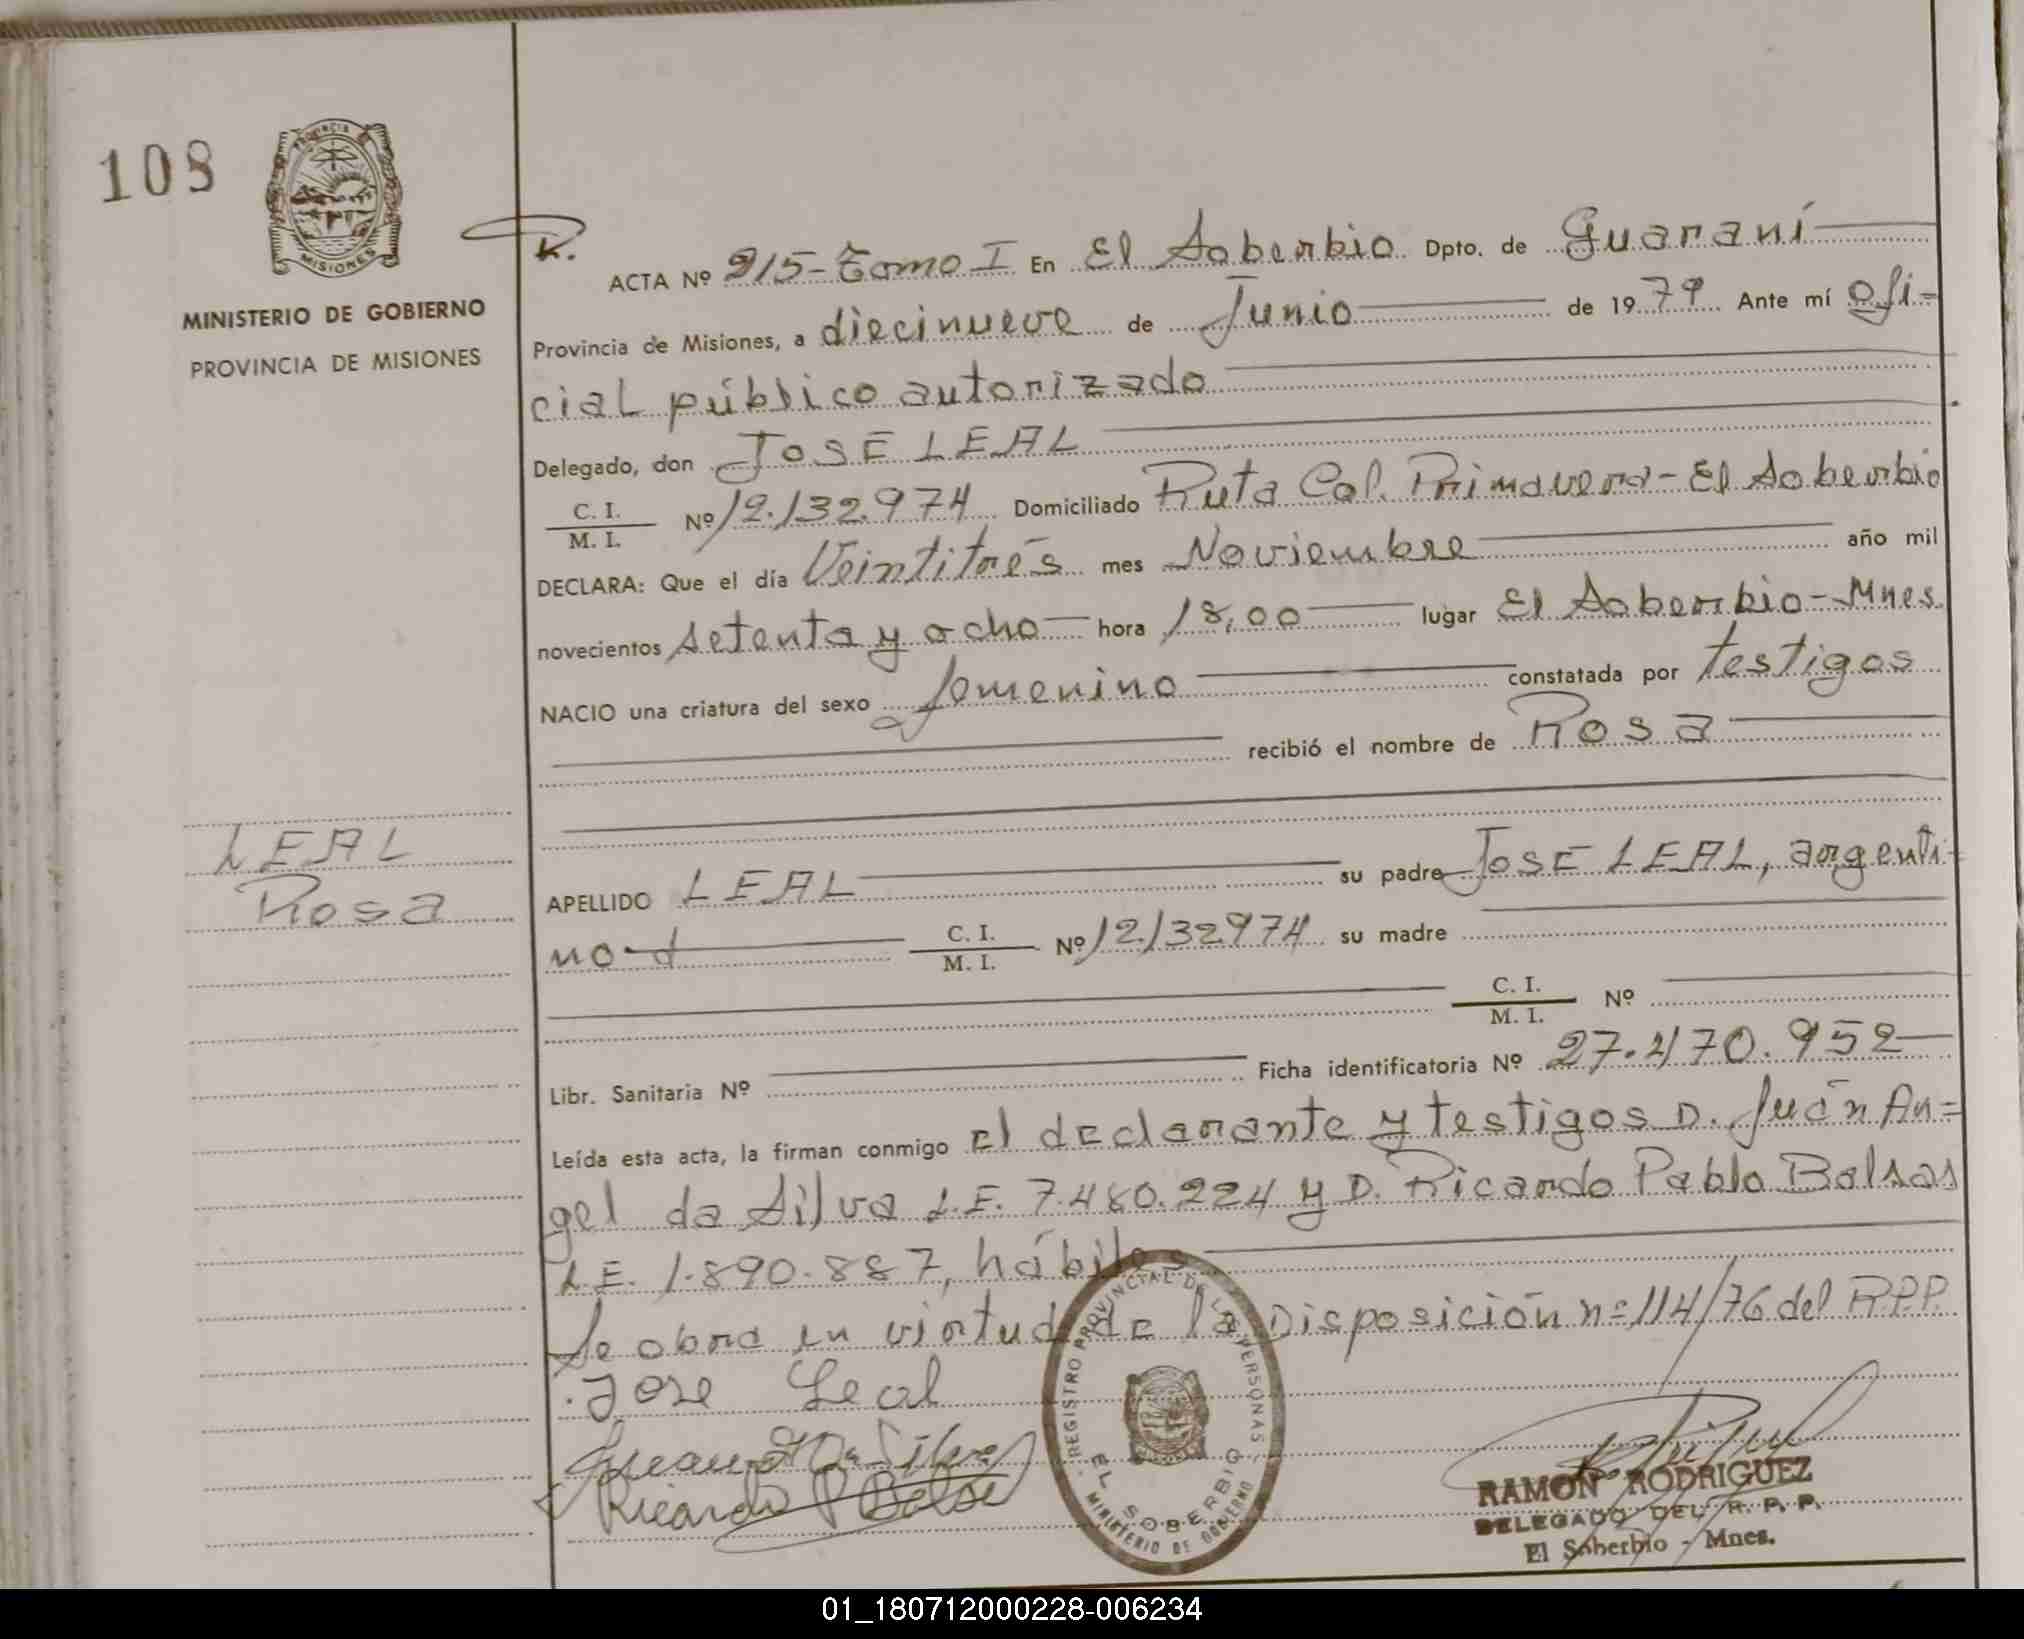 108
PROVINCIA
MISIONES
MINISTERIO DE GOBIERNO
PROVINCIA DE MISIONES
R.
ACTA Nº 215-Tomo I En El Soberbio Dpto. de Guaraní
Provincia de Misiones, a diecinueve de Junio de 1979 Ante mí ofi-
cial público autorizado
Delegado, don JOSE LEAL
C. I.
M. I. Nº 12.132.974 Domiciliado Ruta Col. Primavera-El Soberbio
DECLARA: Que el día Veintitrés mes Noviembre año mil
novecientos setenta y ocho hora 18,00 lugar El Soberbio-Mnes.
NACIO una criatura del sexo femenino constatada por testigos
recibió el nombre de Rosa
LEAL
Rosa
APELLIDO LEAL su padre JOSE LEAL, argenti-
no- C. I.
M. I. Nº 12132974 su madre
C. I.
M. I. Nº
Libr. Sanitaria Nº Ficha identificatoria Nº 27.470.952
Leída esta acta, la firman conmigo El declarante y testigos D. Juan An=
gel da Silva L.E. 7.480.224 y D. Ricardo Pablo Balsas
L.E. 1.890.887, hábiles
Se obra en virtud de la Disposición nº114/76 del R.P.P.
Jose Leal
Juan A Da Silva
Ricardo P Balsa
REGISTRO PROVINCIAL DE LAS PERSONAS
EL SOBERBIO
MINISTERIO DE GOBIERNO
RAMON RODRIGUEZ
DELEGADO DEL R. P. P.
El Soberbio - Mnes.
01_180712000228-006234